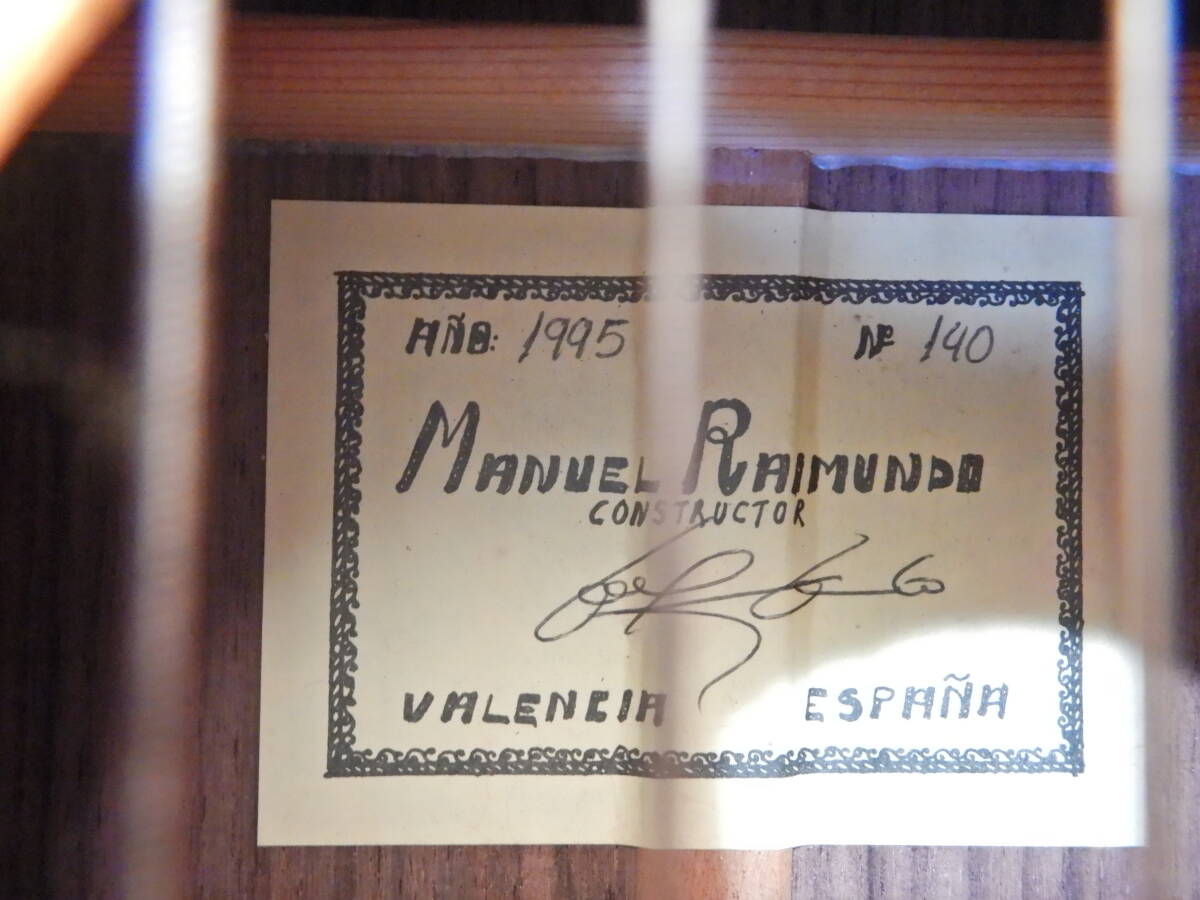 AÑO: 1995 Nº 140
MANUEL RAIMUNDO
CONSTRUCTOR
VALENCIA ESPAÑA